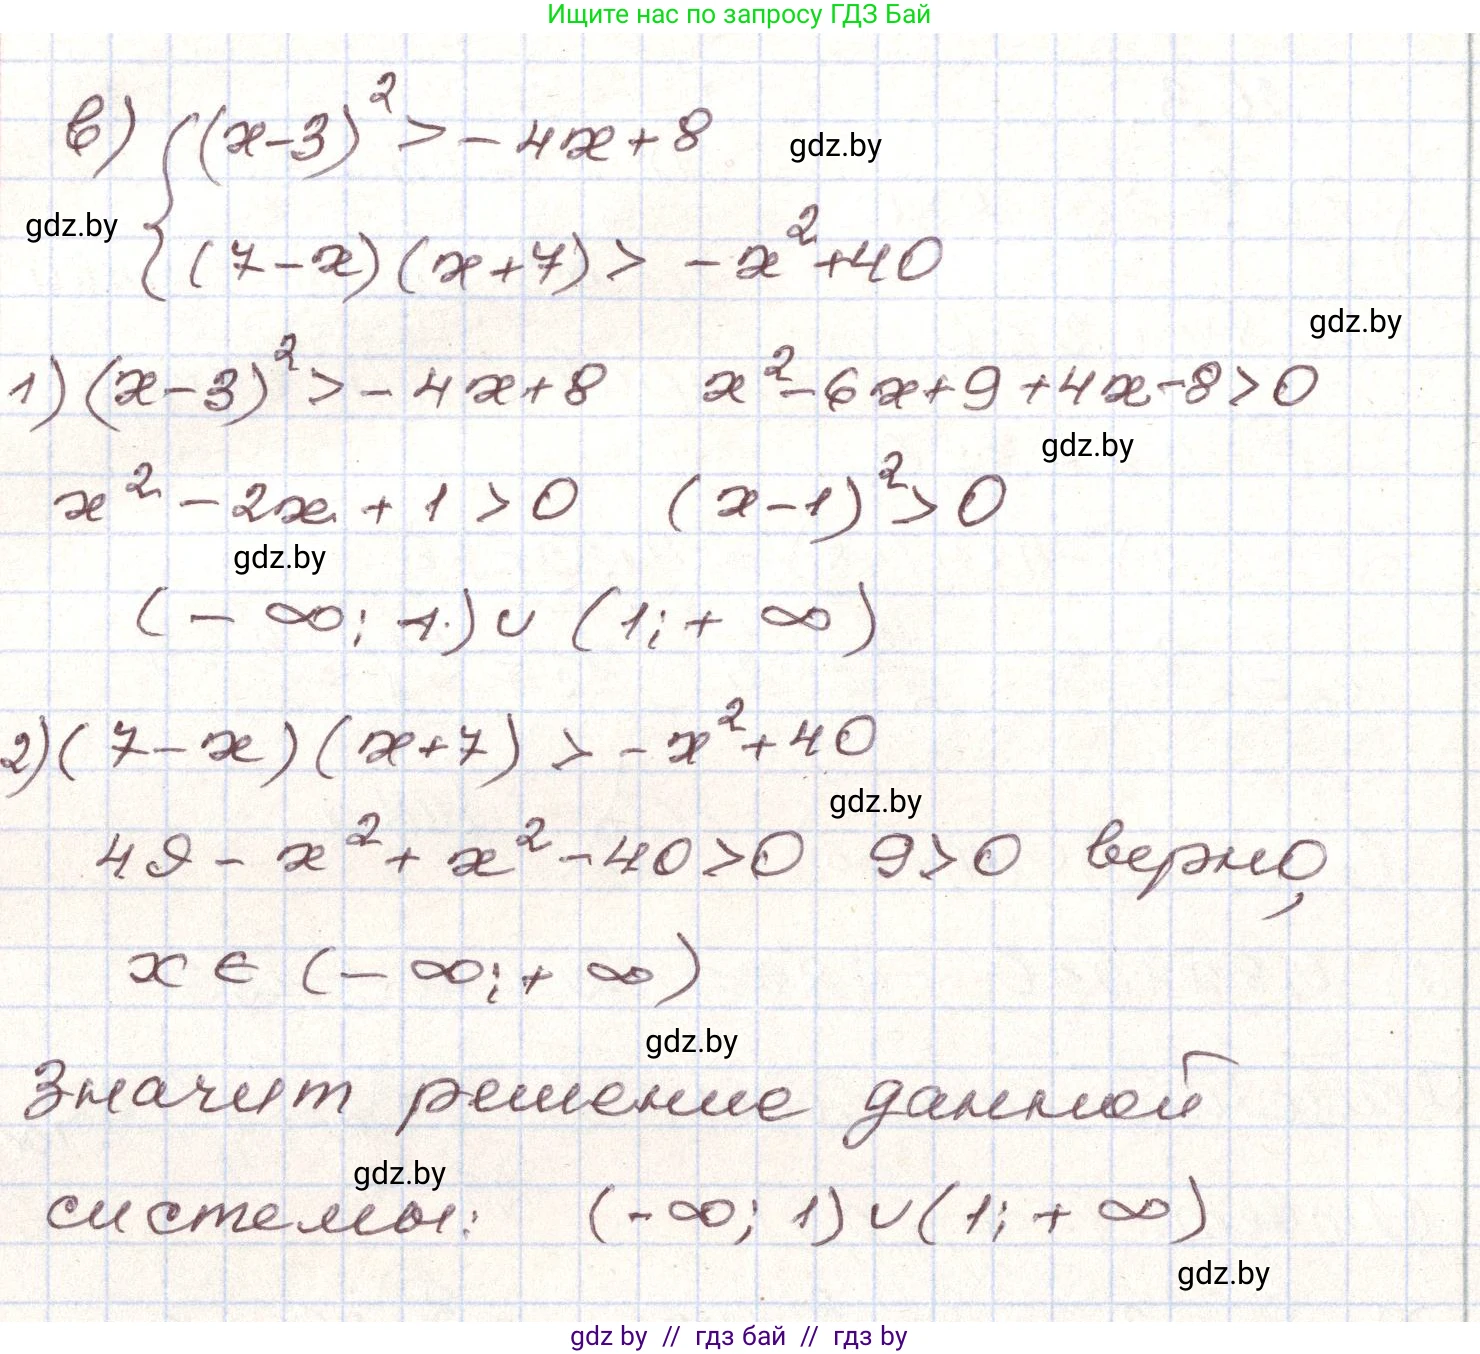 Ищите нас по запросу ГДЗ Бай
в) { (x-3)² > -4x+8
gdz.by
gdz.by
(7-x)(x+7) > -x²+40
gdz.by
1) (x-3)² > -4x+8 x²-6x+9+4x-8>0
gdz.by
x²-2x+1>0 (x-1)²>0
gdz.by
(-∞; 1) ∪ (1; +∞)
2) (7-x)(x+7) > -x²+40
gdz.by
49-x²+x²-40>0 9>0 верно,
x ∈ (-∞; +∞)
gdz.by
Значит решение данной
gdz.by
системы: (-∞; 1) ∪ (1; +∞)
gdz.by
gdz by // гдз бай // gdz by